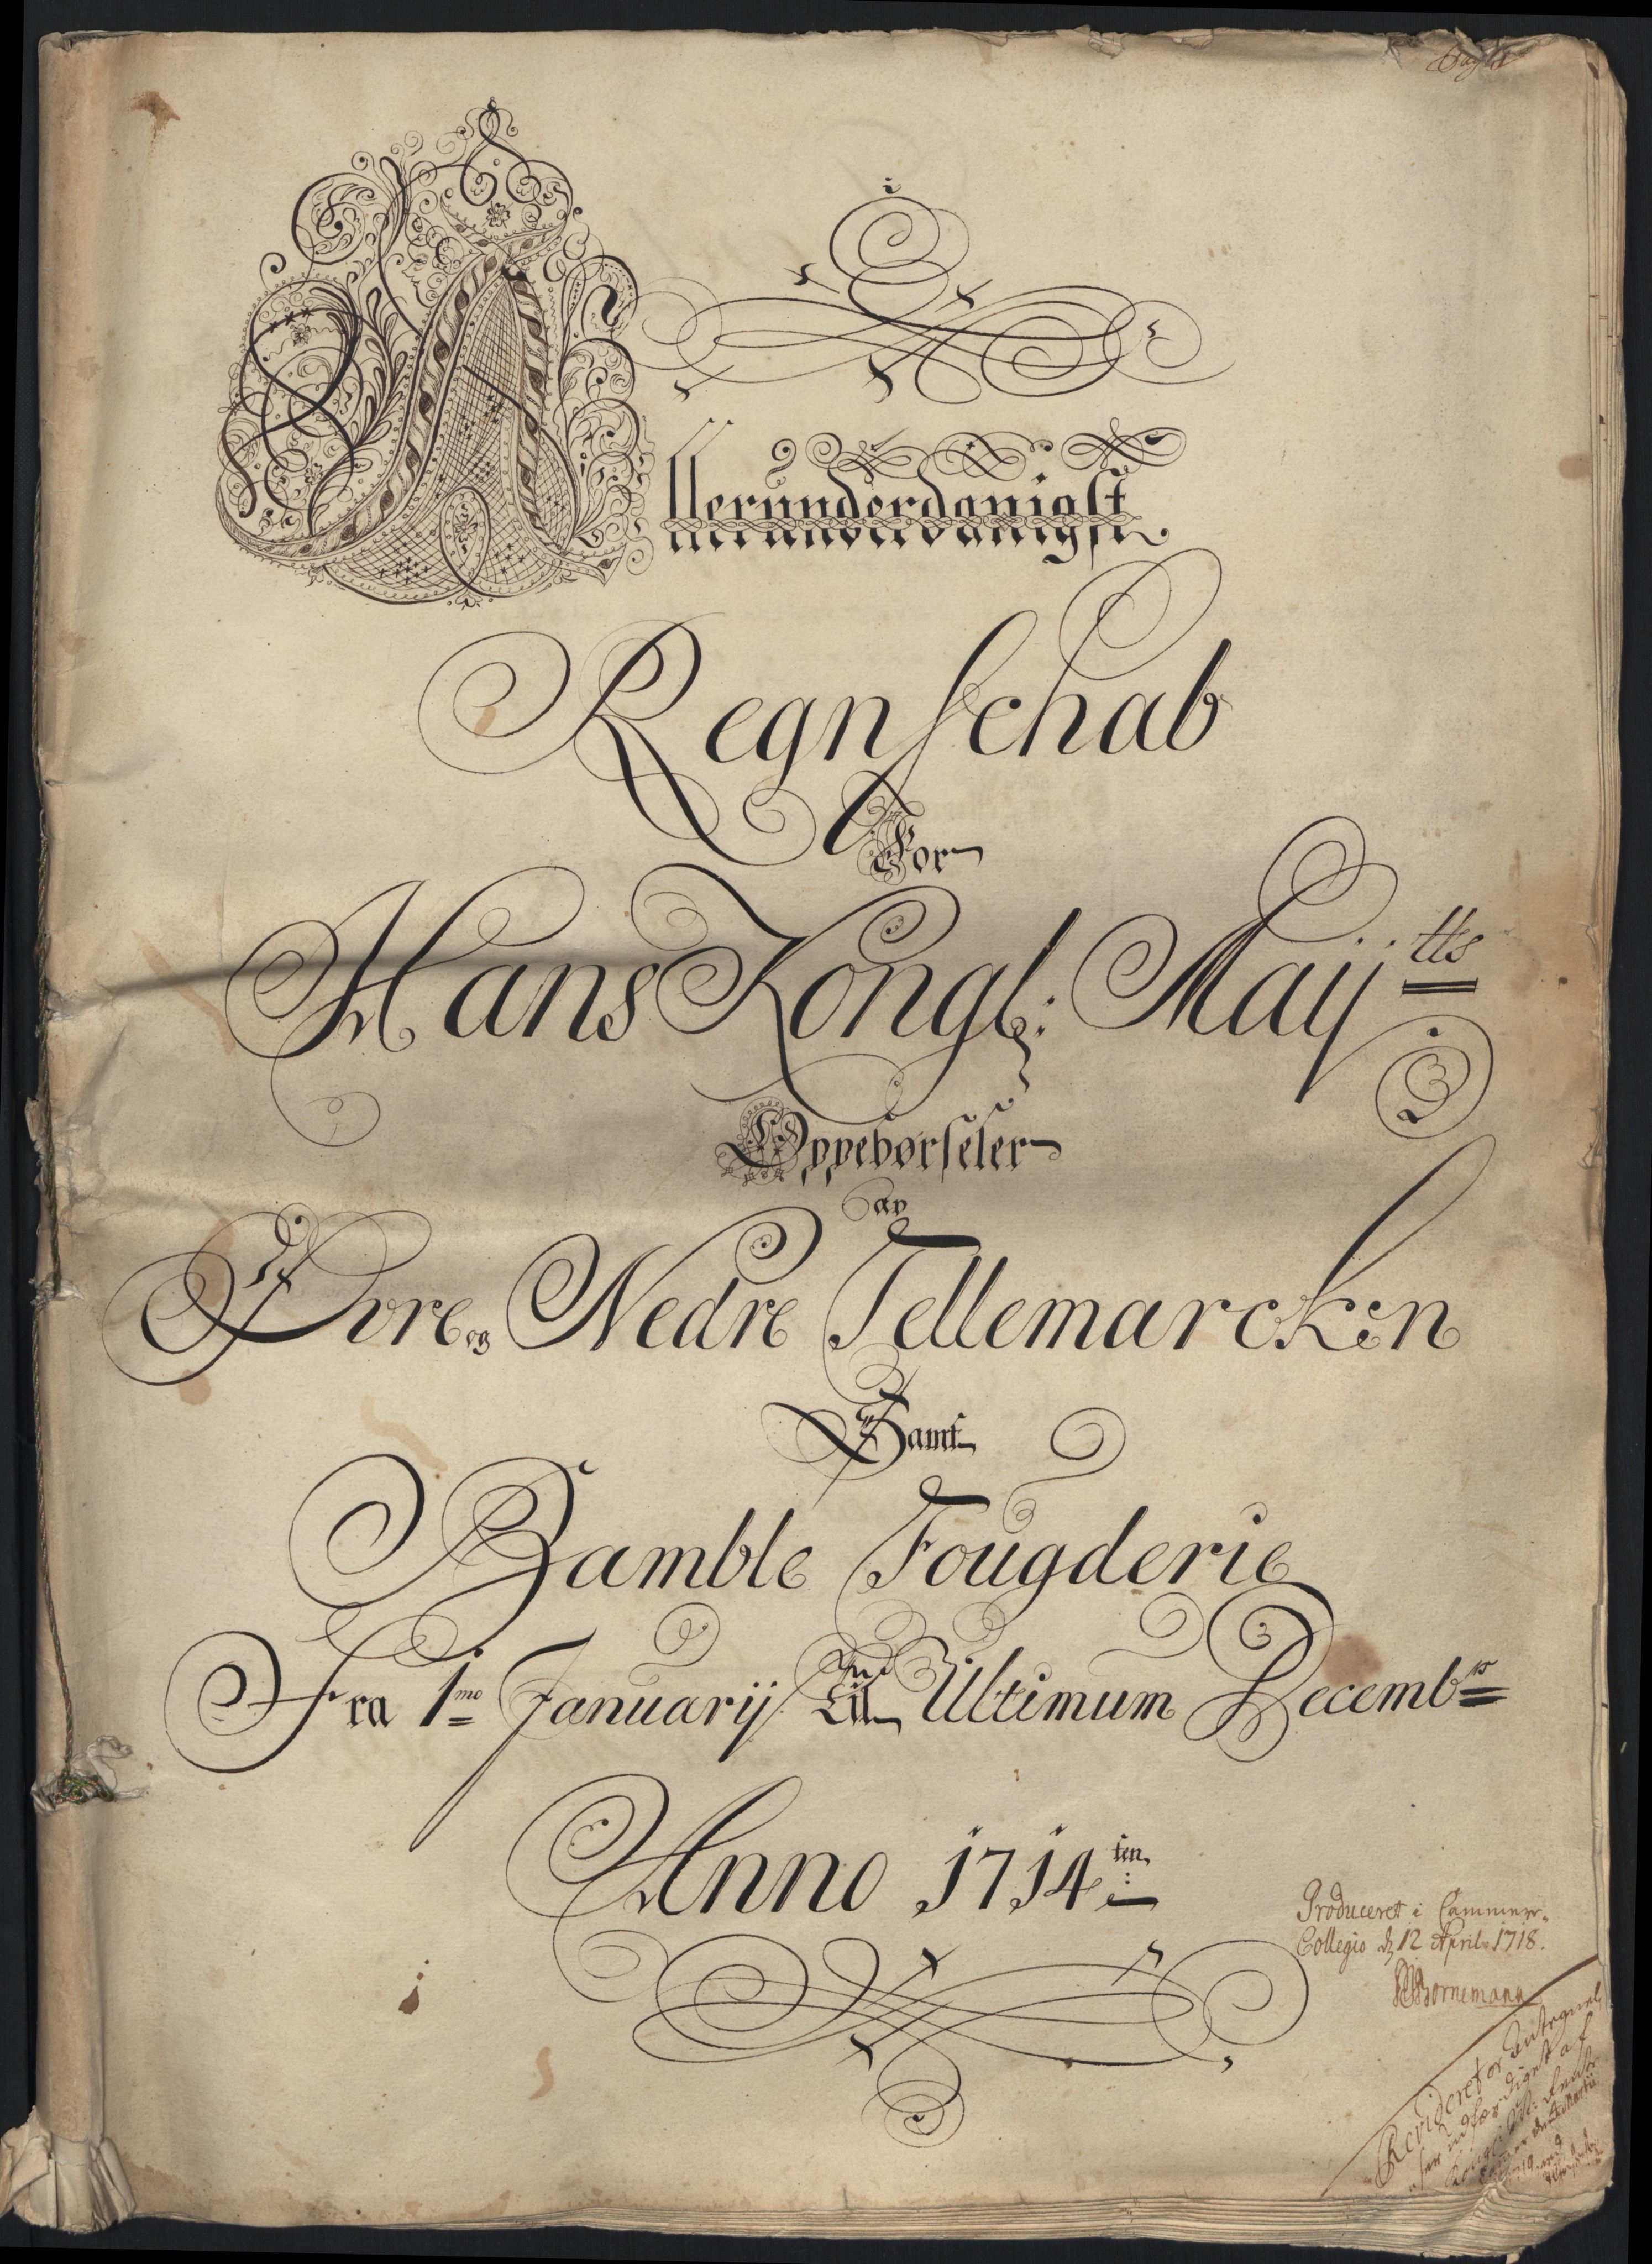 Allerunderdanigst
Regnschab
For
Hans Kongl: Maijtts
Oppebørseler
av
Øvre og Nedre Tellemarcken
Samt
Bamble Fougderie
Fra 1mo Januarij Til Ultimum Decembr
Anno 1714ten
Produceret i Cammer-
Collegio d 12 April 1718.
Bornemann
Revideret or